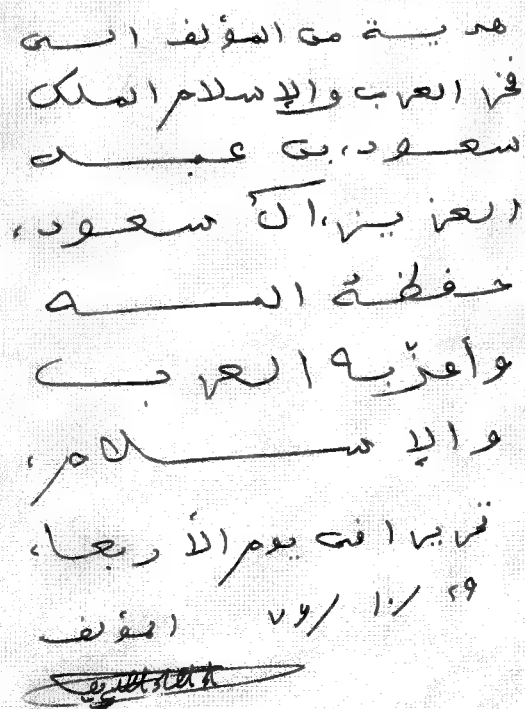 هدية من المؤلف الى
فخر العرب والإسلام الملك
سعود، بن عبد
العزيز، آل سعود،
حفظه الله
وأعزّ به العرب
والإسلام،
تحريرا فى يوم الأربعا،
٢٩ /١٠ /٧٦
المؤلف